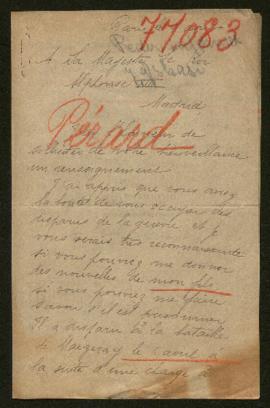 77083
A Sa Majesté le Roi
Alphonse XIII
Madrid
Pérard
solliciter de votre bienveillance
un renseignement
J'ai appris que vous avez
la bonté de vous occuper des
disparus de la guerre et je
vous serais très reconnaissante
si vous pouviez me donner
des nouvelles de mon fils
si vous pouviez me faire
savoir s'il est prisonnier
Il a disparu à la bataille
de Maizeray le avril à
la suite d'une charge à